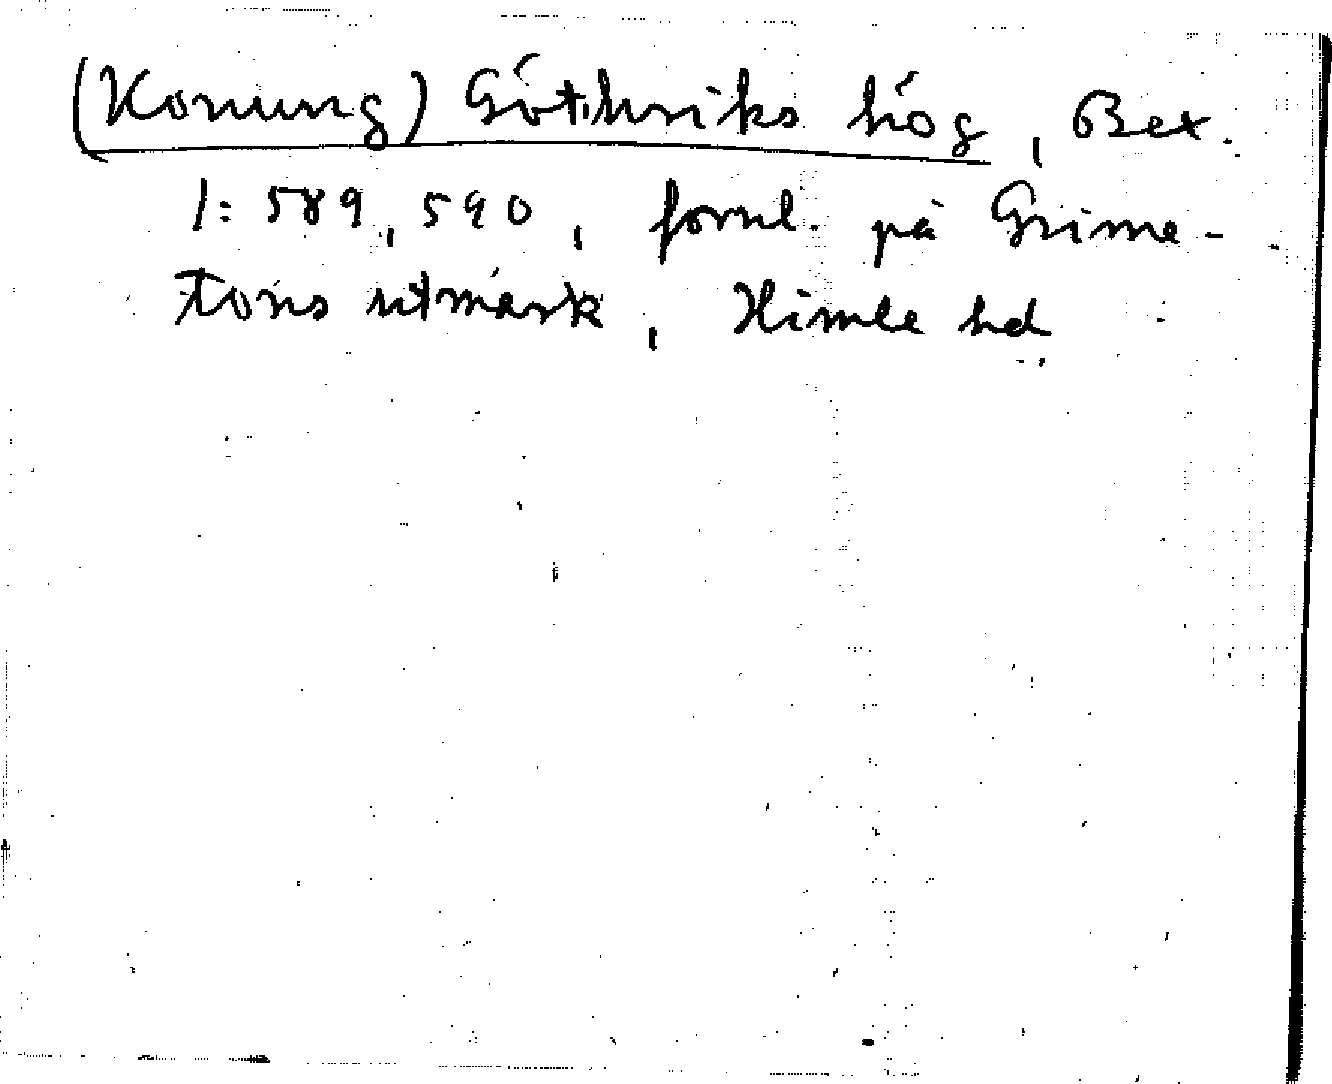 (Konung) Göthriks hög, Bex.
1:589, 590, fornl. på Grime-
tons utmark, Himle hd